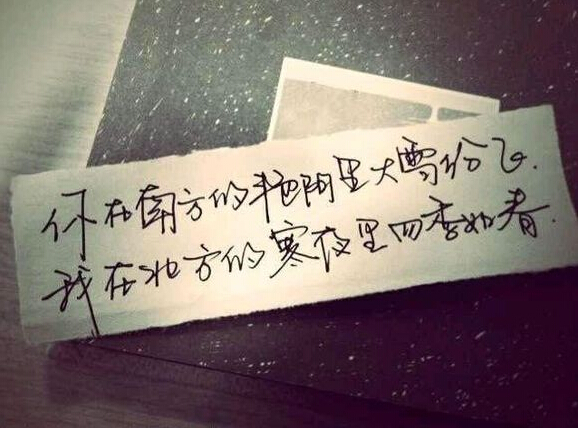 你在南方的艳阳里大雪纷飞.
我在北方的寒夜里四季如春.